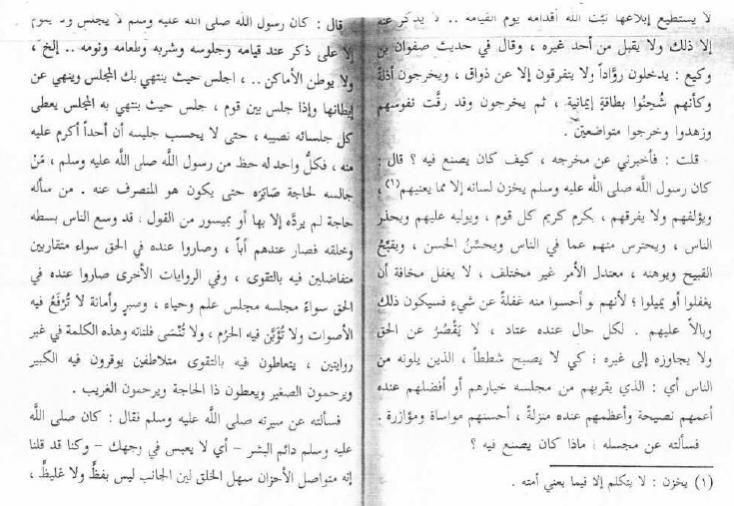 لا يستطيع إبلاغها ثبّت الله أقدامه يوم القيامة .. لا يذكر عنده
إلا ذلك ولا يقبل من أحد غيره ، وقال في حديث صفوان بن
وكيع : يدخلون روَّاداً ولا يتفرقون إلا عن ذواق ، ويخرجون أدلة
وكأنهم شُحِنُوا بطاقةٍ إيمانيةٍ ، ثم يخرجون وقد رقَّت نفوسهم
وزهدوا وخرجوا متواضعين .
قلت : فأخبرني عن مخرجه ، كيف كان يصنع فيه ؟ قال :
كان رسول اللَّه صلى اللَّه عليه وسلم يخزن لسانه إلا مما يعنيهم(١) ،
ويؤلفهم ولا يفرقهم ، يكرم كريم كل قوم ، ويوليه عليهم ويحذر
الناس ، ويحترس منهم عما في الناس ويحسِّنُ الحسن ، ويقبِّحُ
القبيح ويوهنه ، معتدل الأمر غير مختلف ، لا يغفل مخافة أن
يغفلوا أو يميلوا ؛ لأنهم لو أحسوا منه غفلةً عن شيءٍ فسيكون ذلك
وبالاً عليهم . لكل حال عنده عتاد ، لا يَقْصُرُ عن الحق
ولا يجاوزه إلى غيره ؛ كي لا يصبح شططاً ، الذين يلونه من
الناس أي : الذي يقربهم من مجلسه خيارهم أو أفضلهم عنده
أعمهم نصيحة وأعظمهم عنده منزلةً ، أحسنهم مواساة ومؤازرة .
فسألته عن مجلسه : ماذا كان يصنع فيه ؟
(١) يخزن : لا يتكلم إلا فيما يعني أمته .
قال : كان رسول اللَّه صلى اللَّه عليه وسلم لا يجلس ولا يقوم
إلا على ذكر عند قيامه وجلوسه وشربه وطعامه ونومه .. إلخ ،
ولا يوطن الأماكن .. ، اجلس حيث ينتهي بك المجلس وينهي عن
إيطانها وإذا جلس بين قوم ، جلس حيث ينتهي به المجلس يعطى
كل جلسائه نصيبه ، حتى لا يحسب جليسه أن أحداً أكرم عليه
منه ، فكلُّ واحد له حظ من رسول اللَّه صلى اللَّه عليه وسلم ، مَنْ
جالسه لحاجة صَابَرَه حتى يكون هو المنصرف عنه . من سأله
حاجة لم يردَّه إلا بها أو بميسور من القول ؛ قد وسع الناس بسطه
وخلقه فصار عندهم أباً ، وصاروا عنده في الحق سواء متقاربين
متفاضلين فيه بالتقوى ، وفي الروايات الأخرى صاروا عنده في
الحق سواءً مجلسه مجلس علم وحياء ، وصبرٍ وأمانة لا تُرْفَعُ فيه
الأصوات ولا تُؤَبَّن فيه الحرُم ، ولا تُنْثى فلتاته وهذه الكلمة في غير
روايتين ، يتعاطون فيه بالتقوى متلاطفين يوقرون فيه الكبير
ويرحمون الصغير ويعطون ذا الحاجة ويرحمون الغريب .
فسألته عن سيرته صلى اللَّه عليه وسلم فقال : كان صلى اللَّه
عليه وسلم دائم البشر – أي لا يعبس في وجهك – وكنا قد قلنا
إنه متواصل الأحزان سهل الخلق لين الجانب ليس بفظٍّ ولا غليظٍ ،